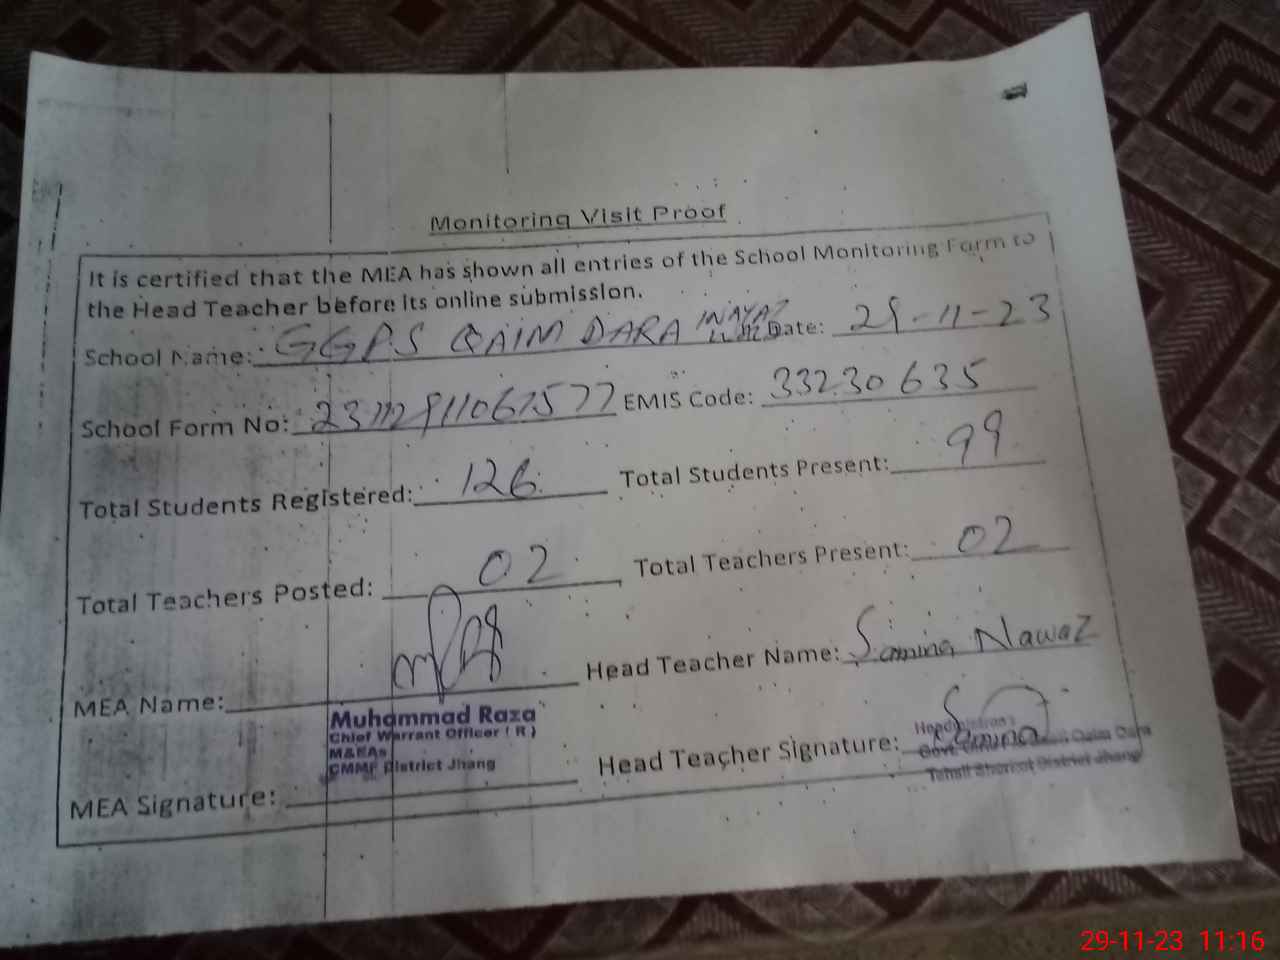 Monitoring Visit Proof
It is certified that the MEA has shown all entries of the School Monitoring Form to
the Head Teacher before its online submission.
School Name: GGPS QAIM DARA INAYAT Date: 29-11-23
School Form No: EMIS Code: 33230635
Total Students Registered: 126 Total Students Present: 99
Total Teachers Posted: 02 Total Teachers Present: 02
MEA Name: Head Teacher Name: Samina Nawaz
Muhammad Raza
Chief Warrant Officer ( R )
M&EAs
CMMF District Jhang
Head Teacher Signature: Samina
Govt. Qaim Dara
Tehsil Shorkot District Jhang
MEA Signature:
29-11-23 11:16